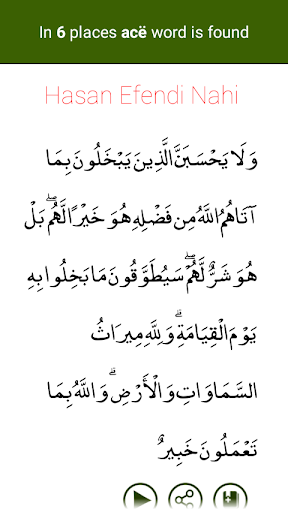 In 6 places acë word is found
Hasan Efendi Nahi
وَلَا يَحْسَبَنَّ الَّذِينَ يَبْخَلُونَ بِمَا
آتَاهُمُ اللَّهُ مِن فَضْلِهِ هُوَ خَيْرًا لَّهُم ۖ بَلْ
هُوَ شَرٌّ لَّهُمْ ۖ سَيُطَوَّقُونَ مَا بَخِلُوا بِهِ
يَوْمَ الْقِيَامَةِ ۗ وَلِلَّهِ مِيرَاثُ
السَّمَاوَاتِ وَالْأَرْضِ ۗ وَاللَّهُ بِمَا
تَعْمَلُونَ خَبِيرٌ